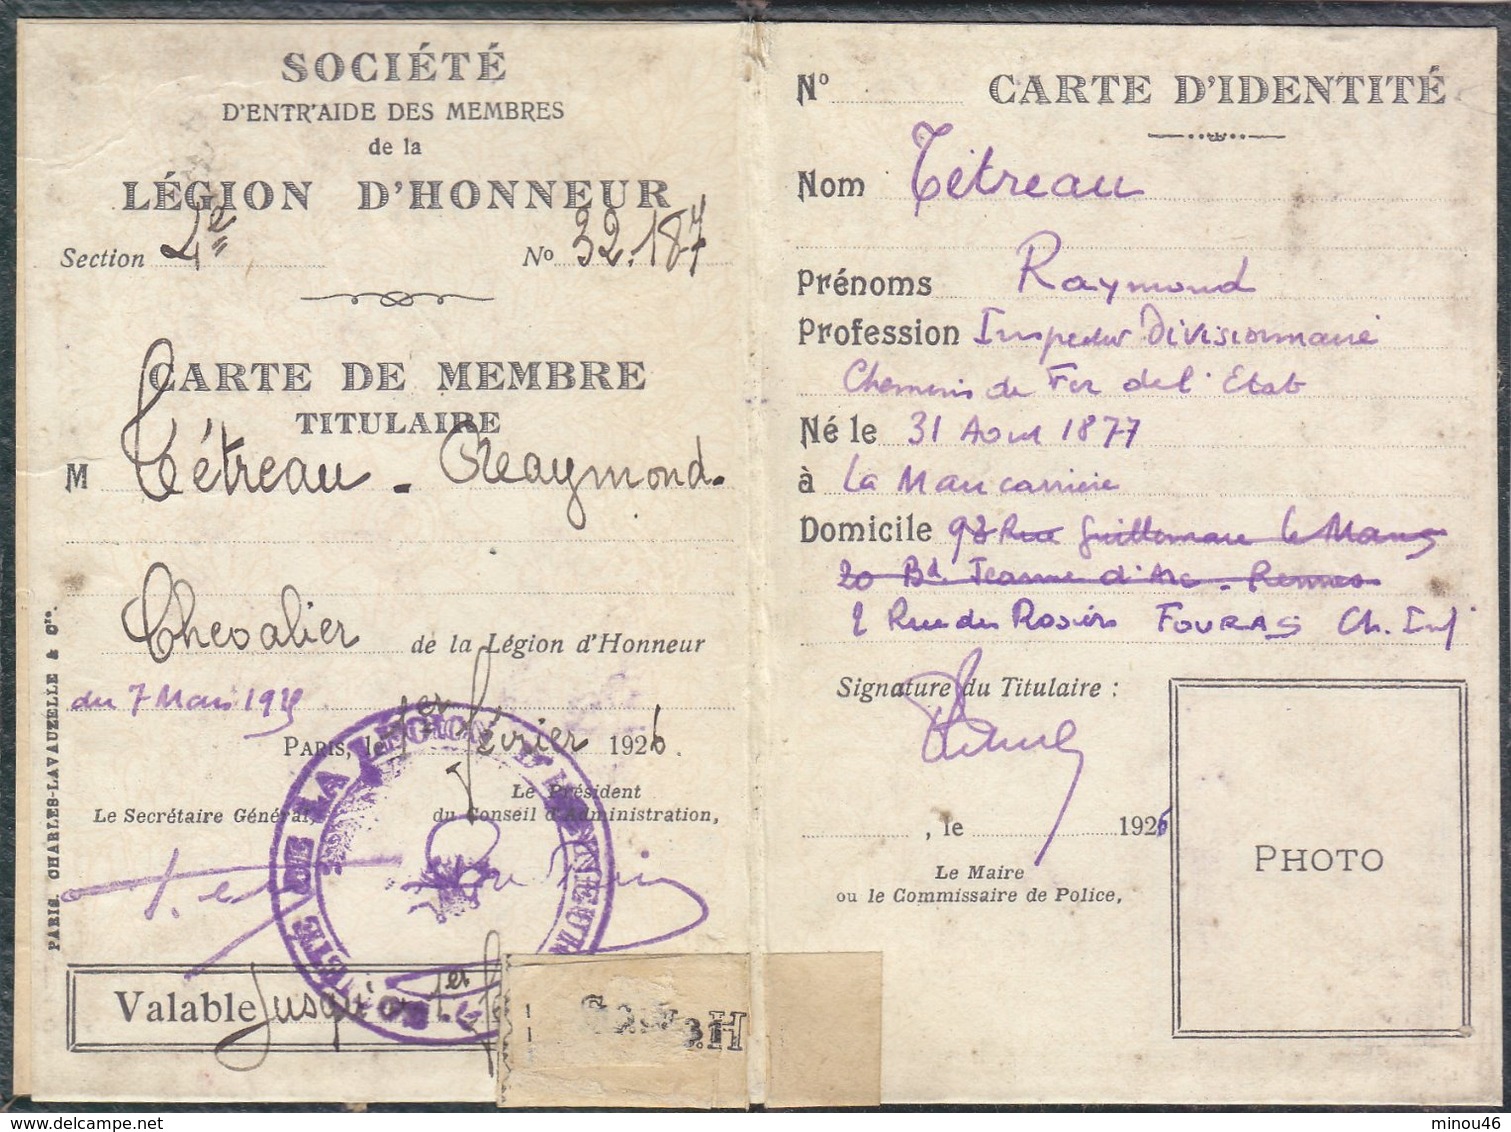 SOCIÉTÉ
D'ENTR'AIDE DES MEMBRES
de la
LÉGION D'HONNEUR
Section 4e No 32.187
CARTE DE MEMBRE
TITULAIRE
M Tétreau - Raymond.
Chevalier de la Légion d'Honneur
du 7 Mars 19
PARIS, le 1er février 1926.
Le Secrétaire Général, Le Président
du Conseil d'Administration,
DE LA LÉGION D'HONNEUR
Valable Jusqu'au 1er
PARIS. CHARLES-LAVAUZELLE & Cie.
No CARTE D'IDENTITÉ
Nom Tétreau
Prénoms Raymond
Profession Inspecteur Divisionnaire
Chemins de Fer de l'Etat
Né le 31 Aout 1877
à La Maucarrière
Domicile 98 Rue Guillemare le Mans
20 Bd Jeanne d'Arc - Rennes
2 Rue des Rosiers FOURAS Ch. Inf
Signature du Titulaire :
, le 1926
Le Maire
ou le Commissaire de Police,
PHOTO
delcampe.net
minou46